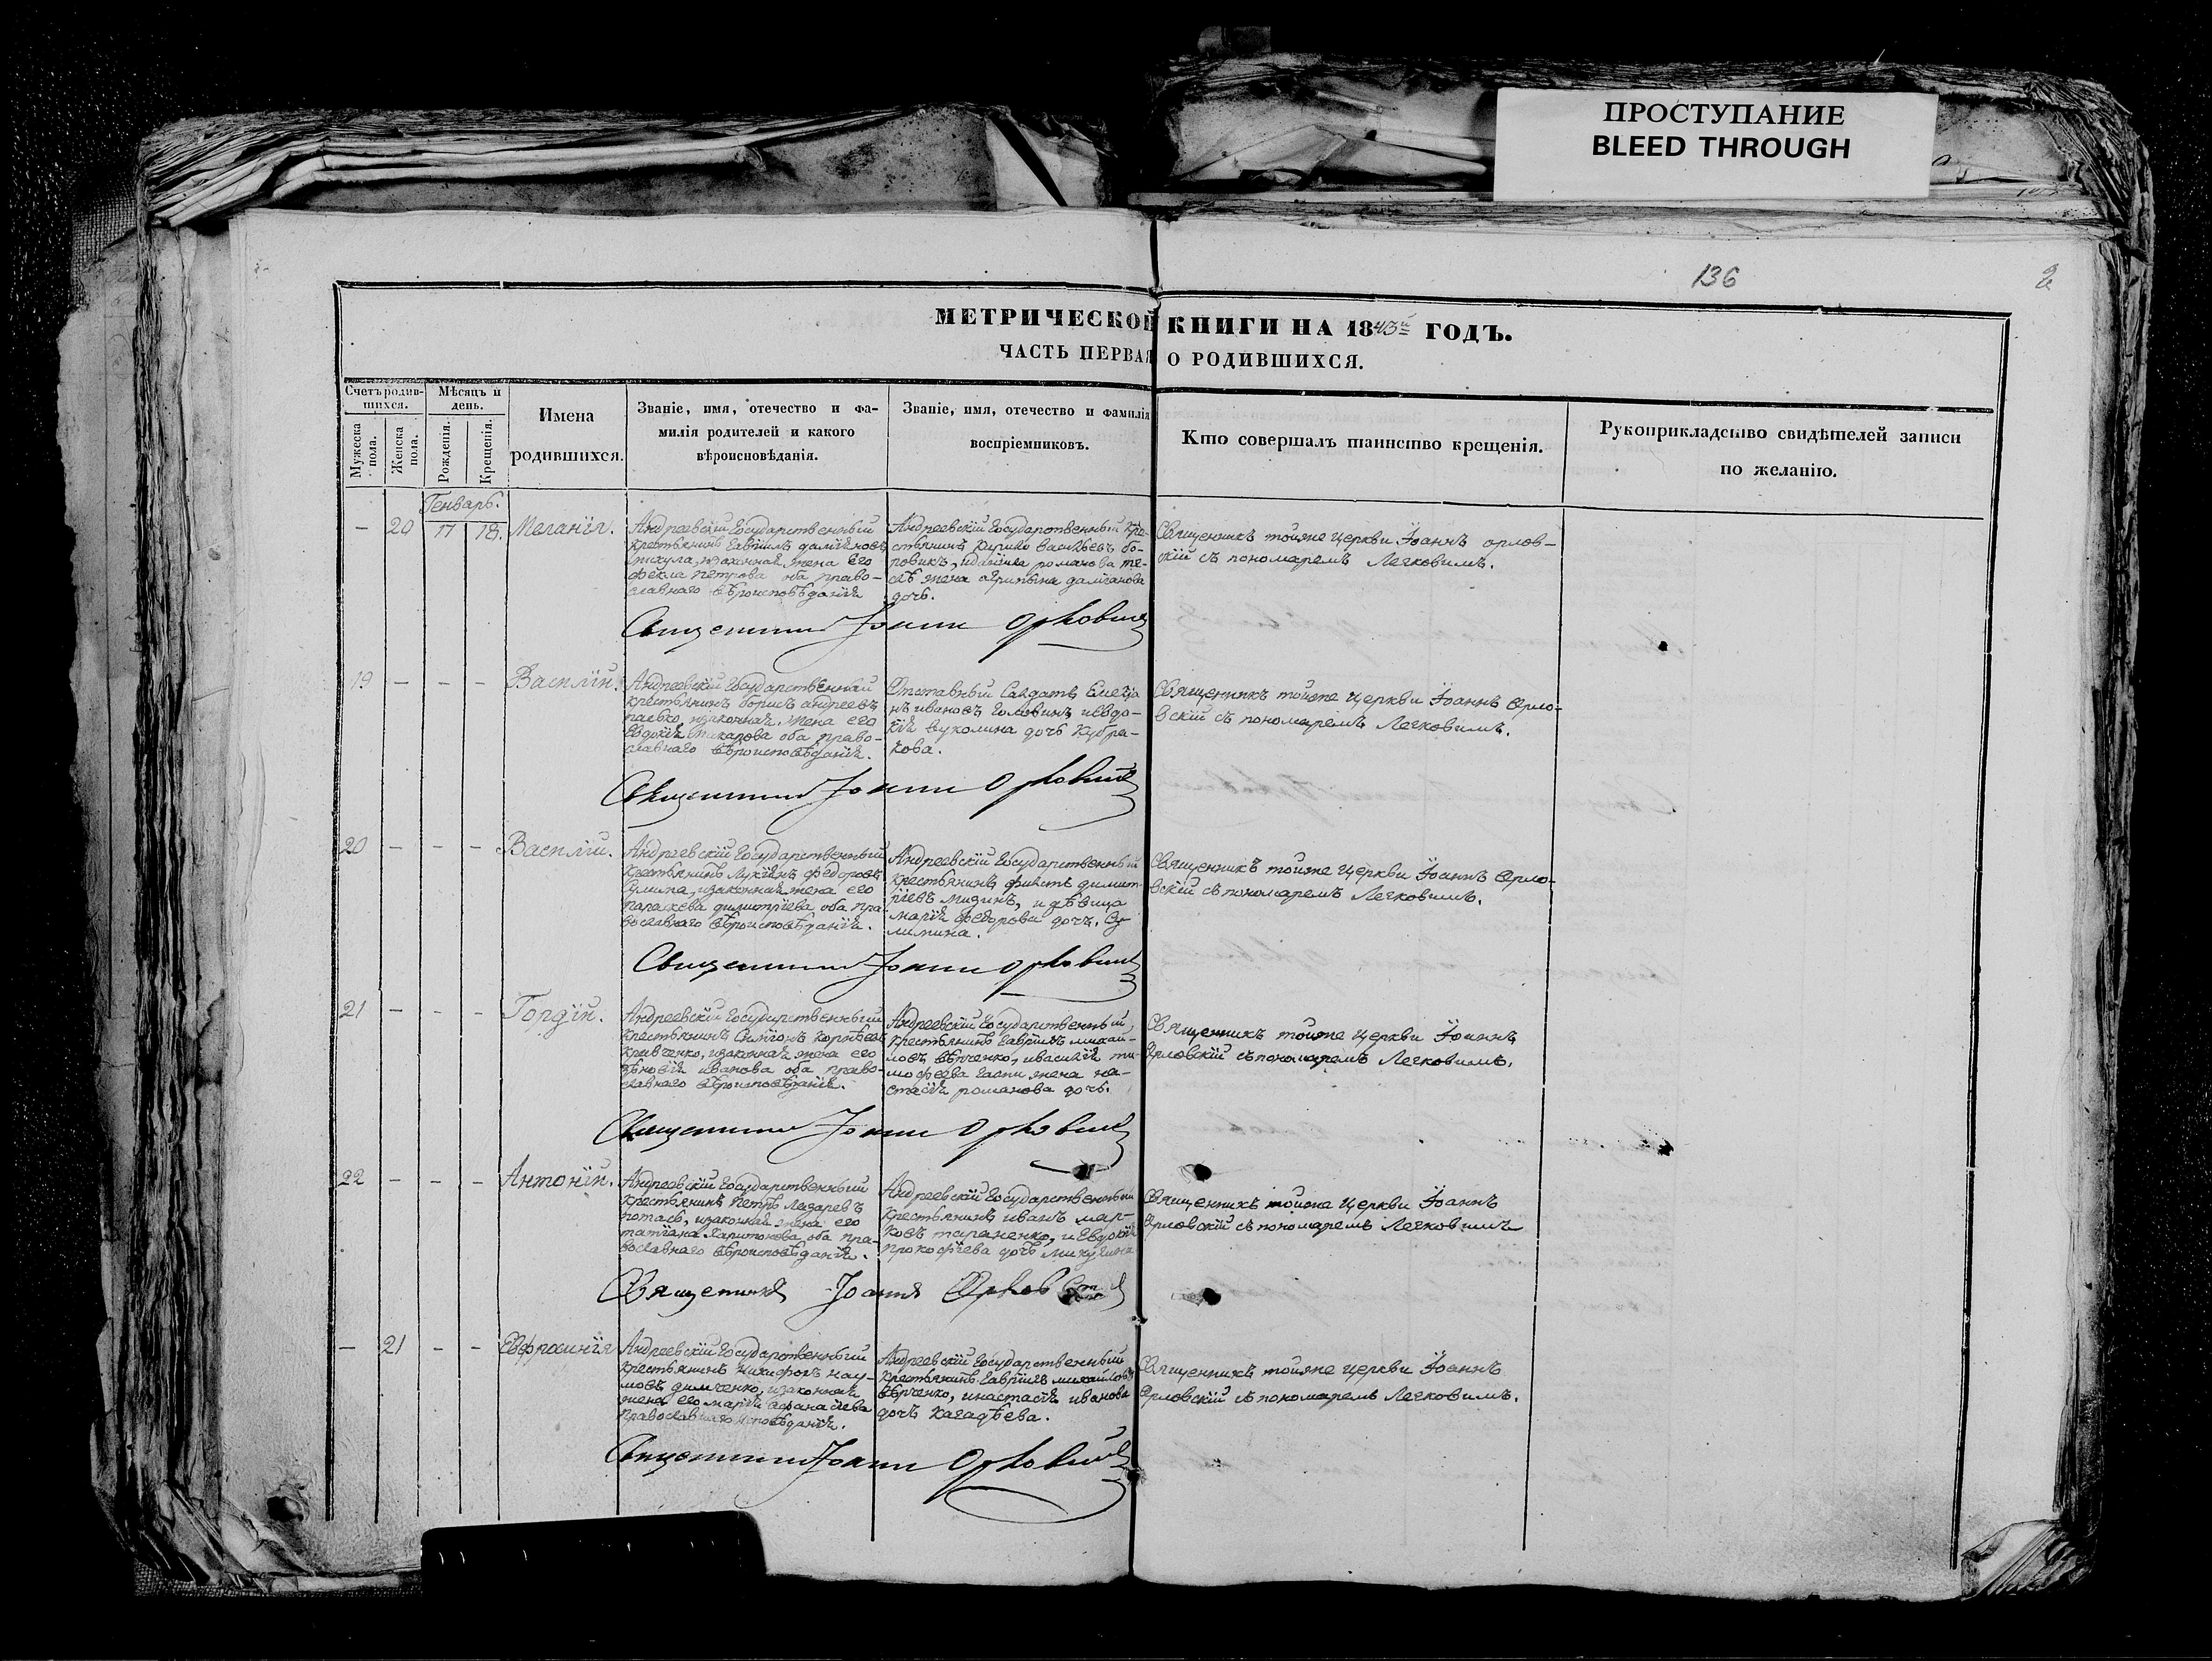 ПРОСТУПАНИЕ
BLEED THROUGH
136
МЕТРИЧЕСКОЙ КНИГИ НА 1843й ГОДЪ.
ЧАСТЬ ПЕРВАЯ О РОДИВШИХСЯ.
Счетъ родив-
шихся.
Мужеска пола.
Женска пола.
Мѣсяцъ и
день.
Рожденія.
Крещенія.
Имена
родившихся.
Званіе, имя, отечество и фа-
милія родителей и какого
вѣроисповѣданія.
Званіе, имя, отечество и фамилія
воспріемниковъ.
Кто совершалъ таинство крещенія.
Рукоприкладство свидѣтелей записи
по желанію.
Генварь.
— 20 17 18. Меланія.
Андреевскій Государственный
крестьянинъ Гавріилъ даміановъ
изаконная жена его
фекла петрова оба право-
славнаго вѣроисповѣданія
Андреевскій Государственный кре-
стьянинъ Кирило Васильевъ бо-
ровикъ, иданіила романова
жена агрипина даміанова
дочь.
Священникъ тойже церкви Іоаннъ орлов-
скій съ пономаремъ Легковимъ.
Священникъ Іоаннъ Орловскій
19 — — — Василій.
Андреевскій Государственный
крестьянинъ борисъ андреевъ
павко, изаконная жена его
Евдокія макарова оба право-
славнаго вѣроисповѣданія.
Отставный Салдатъ Емелја
нъ ивановъ Головинъ иевдо-
кія вуколина дочь Кубра-
кова.
Священникъ тойже церкви Іоаннъ Орло-
вскій съ пономаремъ Легковимъ.
Священникъ Іоаннъ Орловскій
20 — — — Василій.
Андреевскій Государственный
крестьянинъ Лукіянъ федоровъ
Сулима, изаконная жена его
параскева димитріева оба пра-
вославнаго вѣроисповѣданія.
Андреевскій Государственный
крестьянинъ фиистъ димит-
ріевъ мизинъ, и дѣвица
марія федорова дочь. Су
лимина.
Священникъ тойже церкви Іоаннъ Орло-
вскій съ пономаремъ Легковимъ.
Священникъ Іоаннъ Орловскій
21 — — — Гордій.
Андреевскій Государственный
крестьянинъ Симіонъ Корнѣевъ
Кравченко, изаконная жена его
зѣновія иванова оба право-
славнаго вѣроисповѣданія.
Андреевскій Государственный
крестьянинъ Гавріилъ михай-
ловъ вѣрченко, ивасилія ти-
мофеева жена на-
стасія романова дочь.
Священникъ тойже церкви Іоаннъ
Орловскій съ пономаремъ Легковимъ.
Священникъ Іоаннъ Орловскій
22 — — — Антоній.
Андреевскій Государственный
крестьянинъ Петръ Лазаревъ
потась, изаконная жена его
татіана Харитонова оба пра-
вославнаго вѣроисповѣданія.
Андреевскій Государственный
крестьянинъ иванъ мар-
ковъ тараненко, и Евдокія
прокофіева дочь микулина
Священникъ тойже церкви Іоаннъ
Орловскій съ пономаремъ Легковимъ
Священникъ Іоаннъ Орловскій
— 21 — — Евфросинія
Андреевскій Государственный
крестьянинъ никифоръ нау-
мовъ димченко, изаконная
жена его марія афанасіева
православнаго исповѣданія.
Андреевскій Государственный
крестьянинъ Гавріилъ михайловъ
вѣрченко, инастасія иванова
дочь Кагадѣева.
Священникъ тойже церкви Іоаннъ
Орловскій съ пономаремъ Легковимъ.
Священникъ Іоаннъ Орловскій